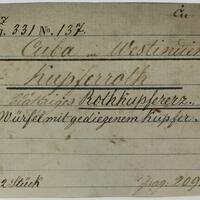 Cu
331 No. 137.
Cuba in Westindien
Kupferroth
blättriges Rothkupfererz.
Würfel mit gediegenem Kupfer.
2 Stück
209